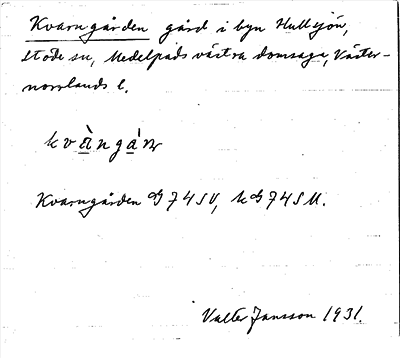 Kvarngården gård i byn Hullsjön,
Stöde sn, Medelpads västra domsaga, Väster-
norrlands l.
kvàngár
Kvarngården G 74 SV, k G 74 SM.
Valter Jansson 1931.